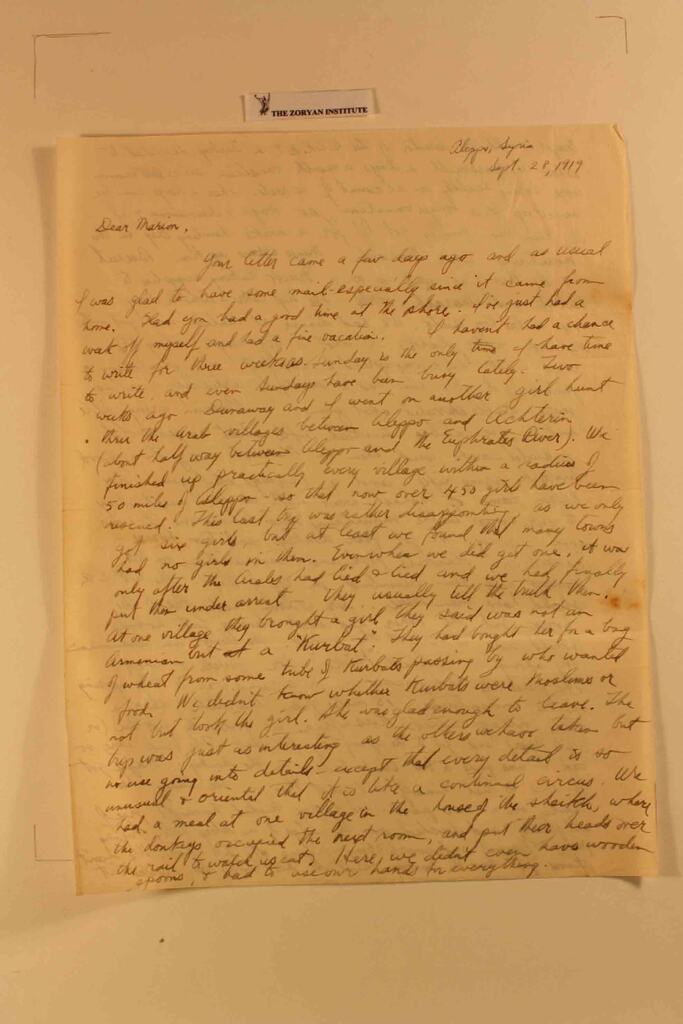 THE ZORYAN INSTITUTE
Aleppo, Syria
Sept. 28, 1919
Dear Marion,
Your letter came a few days ago and as usual
I was glad to have some mail especially since it came from
home. Glad you had a good time at the shore. I've just had a
week off myself and had a fine vacation. I haven't had a chance
to write for three weeks as Sunday is the only time I have time
to write, and even Sundays have been busy lately. Two
weeks ago Dunaway and I went on another girl hunt
thru the arab villages between Aleppo and Achterin
(about half way between Aleppo and the Euphrates River). We
finished up practically every village within a radius of
50 miles of Aleppo - so that now over 450 girls have been
rescued. This last trip was rather disappointing, as we only
got six girls but at least we found that many towns
had no girls in them. Even when we did get one, it was
only after the Arabs had lied & lied and we had finally
put them under arrest. They usually tell the truth then.
At one village they brought a girl they said was not an
Armenian but at a "Kurbat". They had bought her for a bag
of wheat from some tribe of Kurbats passing by who wanted
food. We didn't know whether Kurbats were Moslems or
not but took the girl. She was glad enough to leave. The
trip was just as interesting as the others we have taken but
no use going into details - except that every detail is so
unusual & oriental that it is like a continual circus. We
had a meal at one village in the house of the sheitch, where
the donkeys occupied the next room, and put their heads over
the rail to watch us eat. Here, we didn't even have wooden
spoons, & had to use our hands for everything.